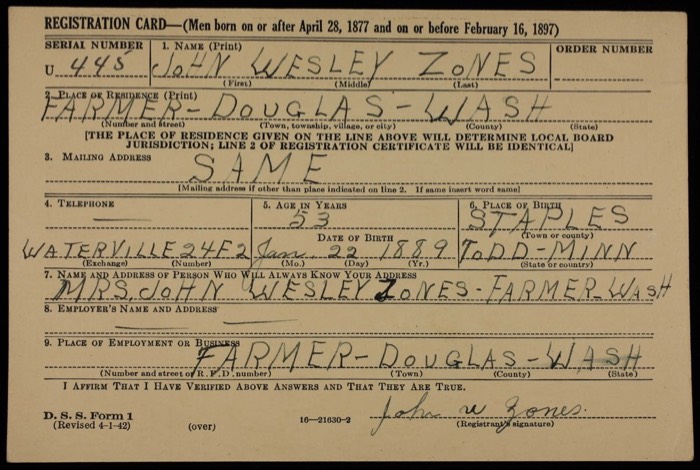 REGISTRATION CARD—(Men born on or after April 28, 1877 and on or before February 16, 1897)
SERIAL NUMBER 1. NAME (Print) ORDER NUMBER
U 445 JOHN WESLEY ZONES
(First) (Middle) (Last)
2. PLACE OF RESIDENCE (Print)
FARMER - DOUGLAS - WASH
(Number and street) (Town, township, village, or city) (County) (State)
[THE PLACE OF RESIDENCE GIVEN ON THE LINE ABOVE WILL DETERMINE LOCAL BOARD
JURISDICTION; LINE 2 OF REGISTRATION CERTIFICATE WILL BE IDENTICAL]
3. MAILING ADDRESS
SAME
[Mailing address if other than place indicated on line 2. If same insert word same]
4. TELEPHONE 5. AGE IN YEARS 6. PLACE OF BIRTH
53 STAPLES
DATE OF BIRTH (Town or county)
WATERVILLE 24F2 Jan. 22 1889 TODD - MINN
(Exchange) (Number) (Mo.) (Day) (Yr.) (State or country)
7. NAME AND ADDRESS OF PERSON WHO WILL ALWAYS KNOW YOUR ADDRESS
MRS. JOHN WESLEY ZONES - FARMER - WASH
8. EMPLOYER'S NAME AND ADDRESS
9. PLACE OF EMPLOYMENT OR BUSINESS
FARMER - DOUGLAS - WASH
(Number and street or R. F. D. number) (Town) (County) (State)
I AFFIRM THAT I HAVE VERIFIED ABOVE ANSWERS AND THAT THEY ARE TRUE.
D. S. S. Form 1 John w Zones.
(Revised 4-1-42) (over) 16—21630-2 (Registrant's signature)